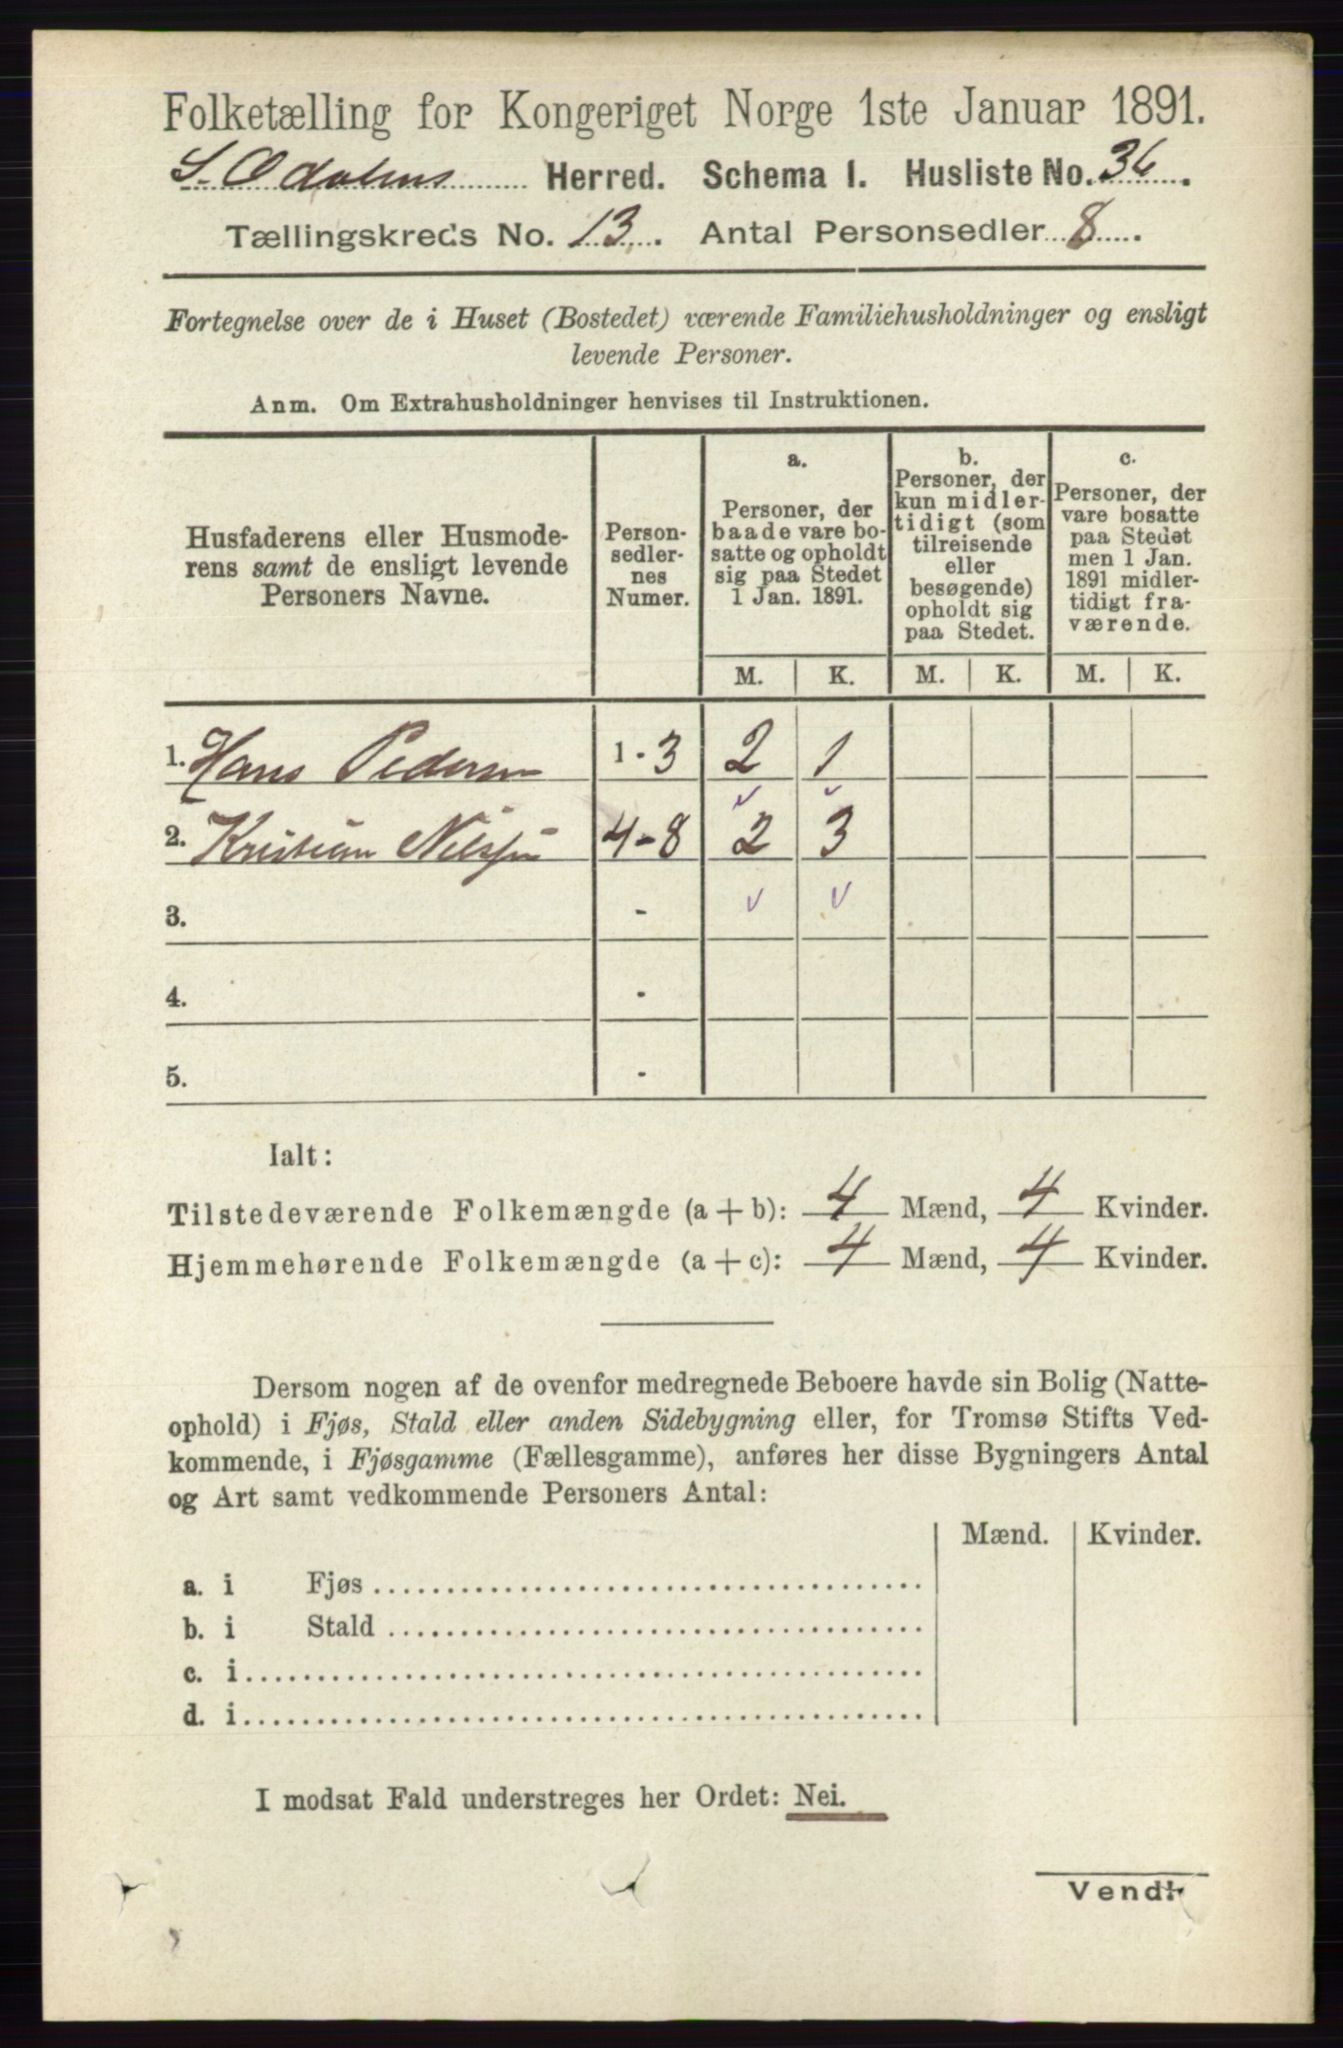 Folketælling for Kongeriget Norge 1ste Januar 1891.
S. Odalens Herred. Schema 1. Husliste No. 36.
Tællingskreds No. 13. Antal Personsedler 8.
Fortegnelse over de i Huset (Bostedet) værende Familiehusholdninger og ensligt
levende Personer.
Anm. Om Extrahusholdninger henvises til Instruktionen.
Husfaderens eller Husmode-
rens samt de ensligt levende
Personers Navne.
Person-
sedler-
nes
Numer.
a.
Personer, der
baade vare bo-
satte og opholdt
sig paa Stedet
1 Jan. 1891.
b.
Personer, der
kun midler-
tidigt (som
tilreisende
eller
besøgende)
opholdt sig
paa Stedet.
c.
Personer, der
vare bosatte
paa Stedet
men 1 Jan.
1891 midler-
tidigt fra-
værende.
M. K. M. K. M. K.
1. Hans Pedersen 1-3 2 1
2. Kristian Nilssen 4-8 2 3
3. -
4. -
5. -
Ialt:
Tilstedeværende Folkemængde (a+b): 4 Mænd, 4 Kvinder.
Hjemmehørende Folkemængde (a+c): 4 Mænd, 4 Kvinder.
Dersom nogen af de ovenfor medregnede Beboere havde sin Bolig (Natte-
ophold) i Fjøs, Stald eller anden Sidebygning eller, for Tromsø Stifts Ved-
kommende, i Fjøsgamme (Fællesgamme), anføres her disse Bygningers Antal
og Art samt vedkommende Personers Antal:
Mænd. Kvinder.
a. i Fjøs
b. i Stald
c. i
d. i
I modsat Fald understreges her Ordet: Nei.
Vend!